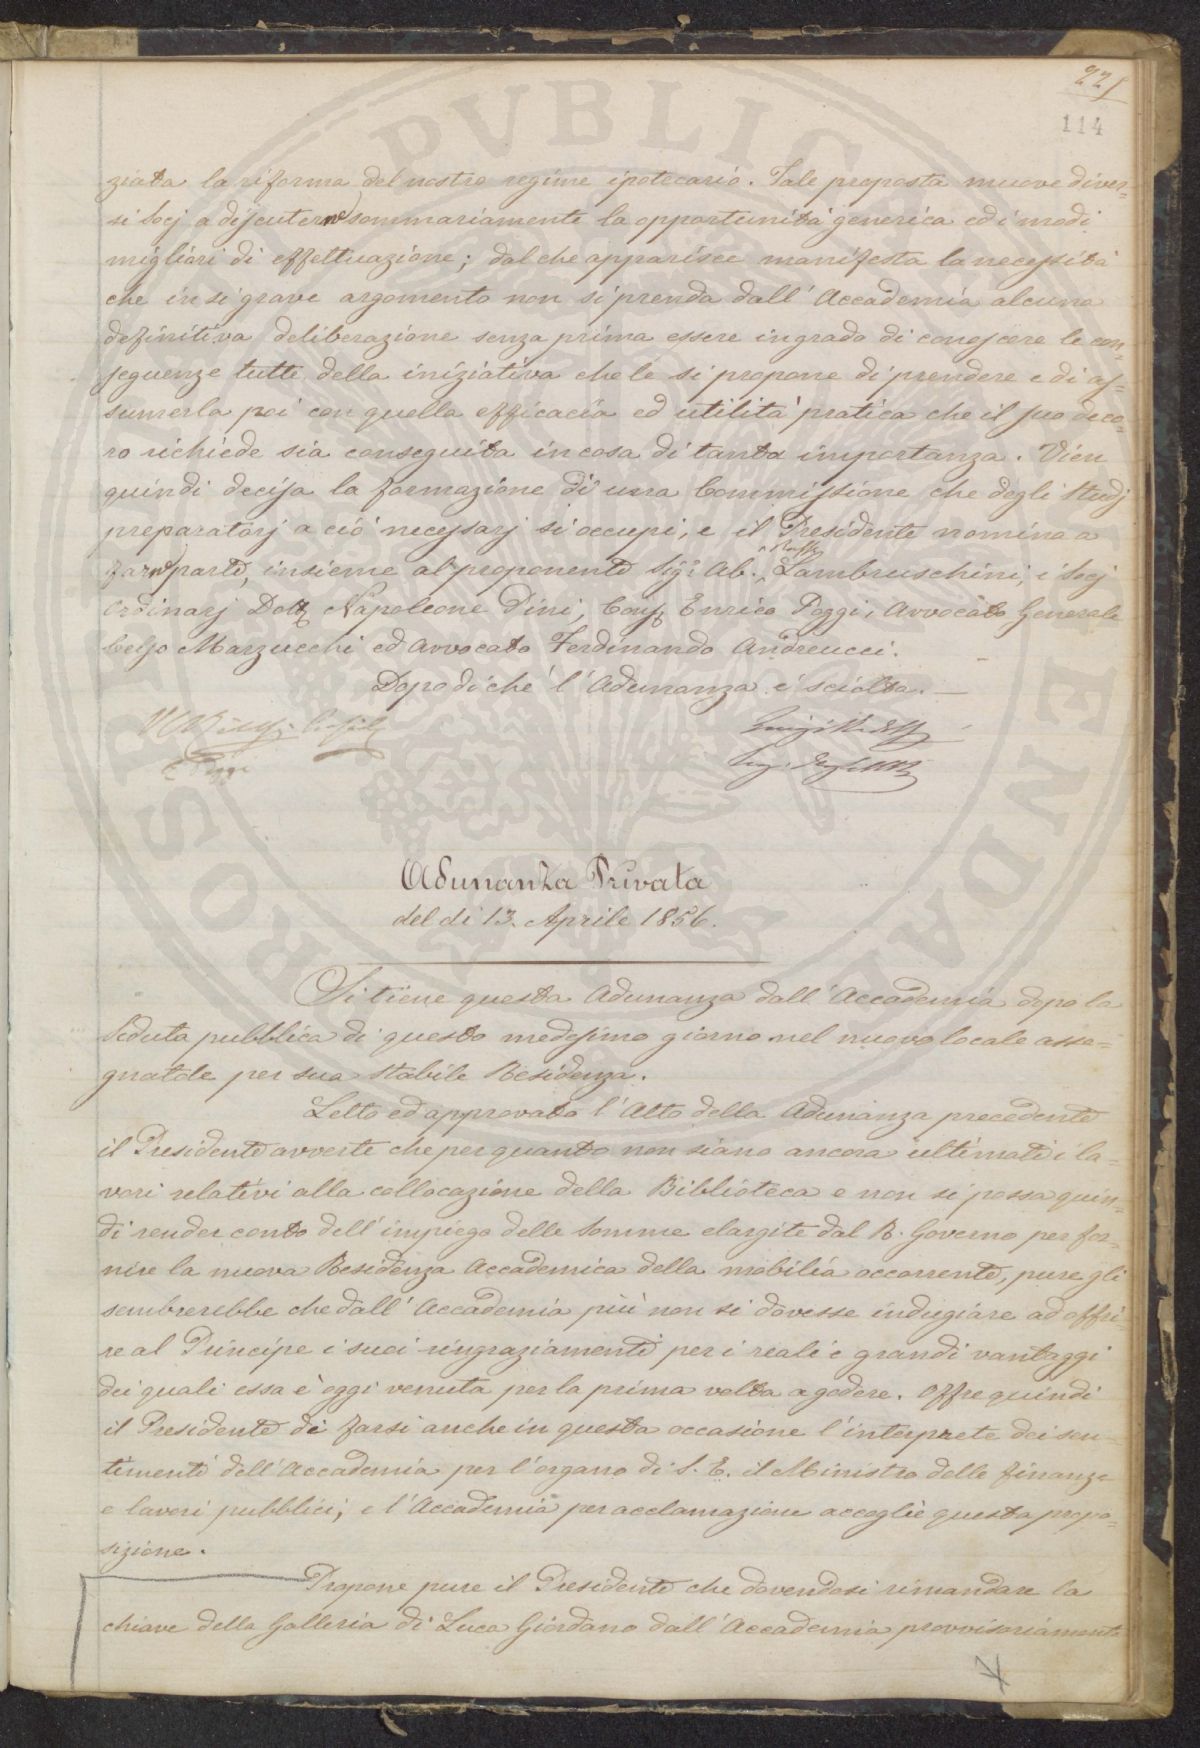 221
114
ziata la riforma del nostro regime ipotecario. Tale proposta muove diver=
si Socj a discuterne sommariamente la opportunità generica ed i modi
migliori di effettuazione; dal che apparisce manifesta la necessità
che in sì grave argomento non si prenda dall'Accademia alcuna
definitiva deliberazione senza prima essere in grado di conoscere le con=
seguenze tutte della iniziativa che le si propone di prendere e di as=
sumerla poi con quella efficacia ed utilità pratica che il suo deco=
ro richiede sia conseguita in cosa di tanta importanza. Vien
quindi decisa la formazione di una Commissione che degli studj
preparatorj a ciò necessarj si occupi, e il Presidente nomina a
farne parte, insieme al proponente Sig.r Ab. Raff. Lambruschini, i Socj
Ordinarj Dott. Napoleone Pini, Cons. Enrico Poggi, Avvocato Generale
Celso Marzucchi ed Avvocato Ferdinando Andreucci.
Dopo di che l'Adunanza è sciolta. —
E Poggi
Adunanza Privata
del dì 13. Aprile 1856.
Si tiene questa Adunanza dall'Accademia dopo la
Seduta pubblica di questo medesimo giorno nel nuovo locale asse=
gnatole per sua stabile Residenza.
Letto ed approvato l'Atto della Adunanza precedente
il Presidente avverte che per quanto non siano ancora ultimati i la=
vori relativi alla collocazione della Biblioteca e non si possa quin=
di render conto dell'impiego delle Somme elargite dal R. Governo per for=
nire la nuova Residenza Accademica della mobilia occorrente, pure gli
sembrerebbe che dall'Accademia più non si dovesse indugiare ad offri=
re al Principe i suoi ringraziamenti per i reali e grandi vantaggi
dei quali essa è oggi venuta per la prima volta a godere. Offre quindi
il Presidente di farsi anche in questa occasione l'interprete dei sen=
timenti dell'Accademia per l'organo di S. E. il Ministro delle finanze
e lavori pubblici; e l'Accademia per acclamazione accoglie questa propo=
sizione.
Propone pure il Presidente che dovendosi rimandare la
chiave della Galleria di Luca Giordano dall'Accademia provvisoriamente